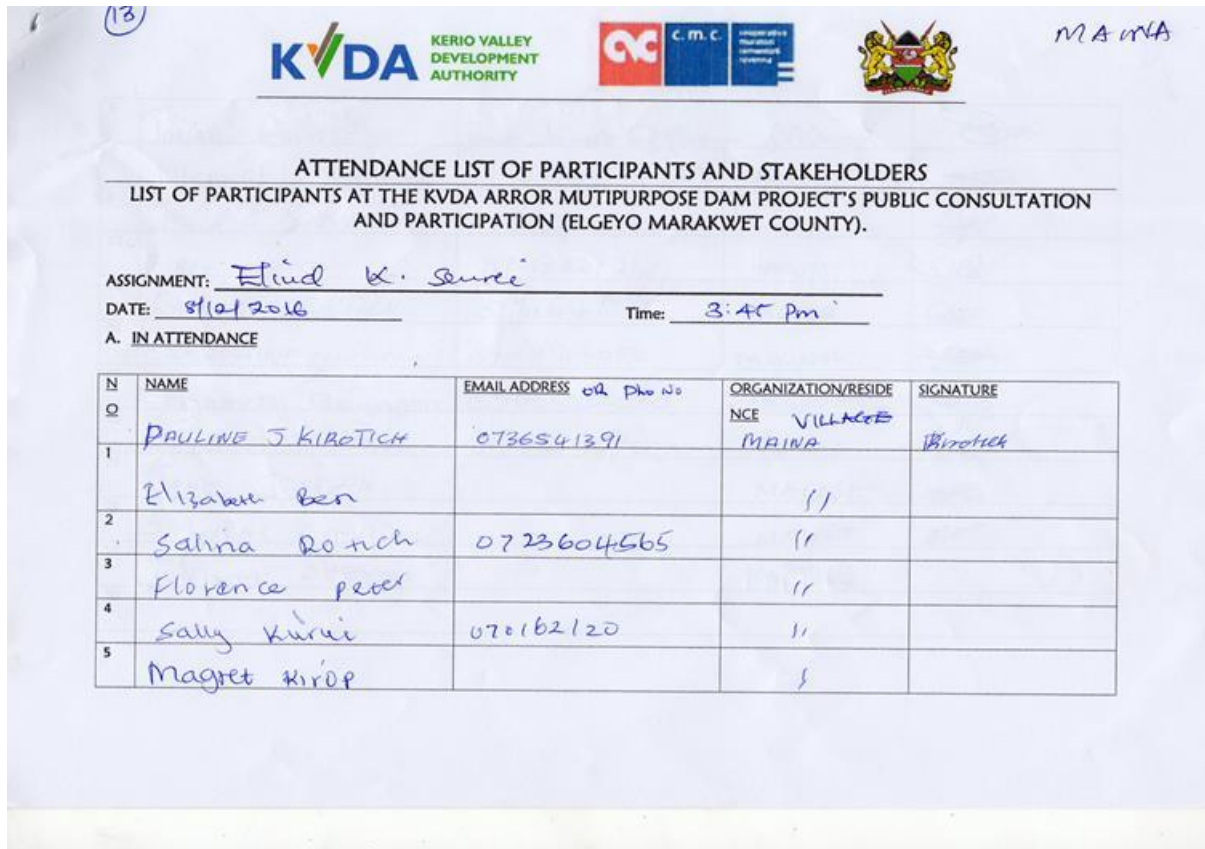 (13)
MAINA
KVDA KERIO VALLEY
DEVELOPMENT
AUTHORITY
c. m. c.
cooperativa
muratori
cementisti
ravenna
ATTENDANCE LIST OF PARTICIPANTS AND STAKEHOLDERS
LIST OF PARTICIPANTS AT THE KVDA ARROR MUTIPURPOSE DAM PROJECT'S PUBLIC CONSULTATION
AND PARTICIPATION (ELGEYO MARAKWET COUNTY).
ASSIGNMENT: Eliud K.
DATE: 8/12/2016 Time: 3:45 Pm
A. IN ATTENDANCE
NO NAME EMAIL ADDRESS OR Pho No ORGANIZATION/RESIDENCE VILLAGE SIGNATURE
PAULINE J KIROTICH 0736541391 MAINA Kirotich
1 Elizabeth Ben "
2 Salina Rotich 0723604565 "
3 Florence Peter "
4 Sally Kurui 070162120 "
5 Magret Kirop